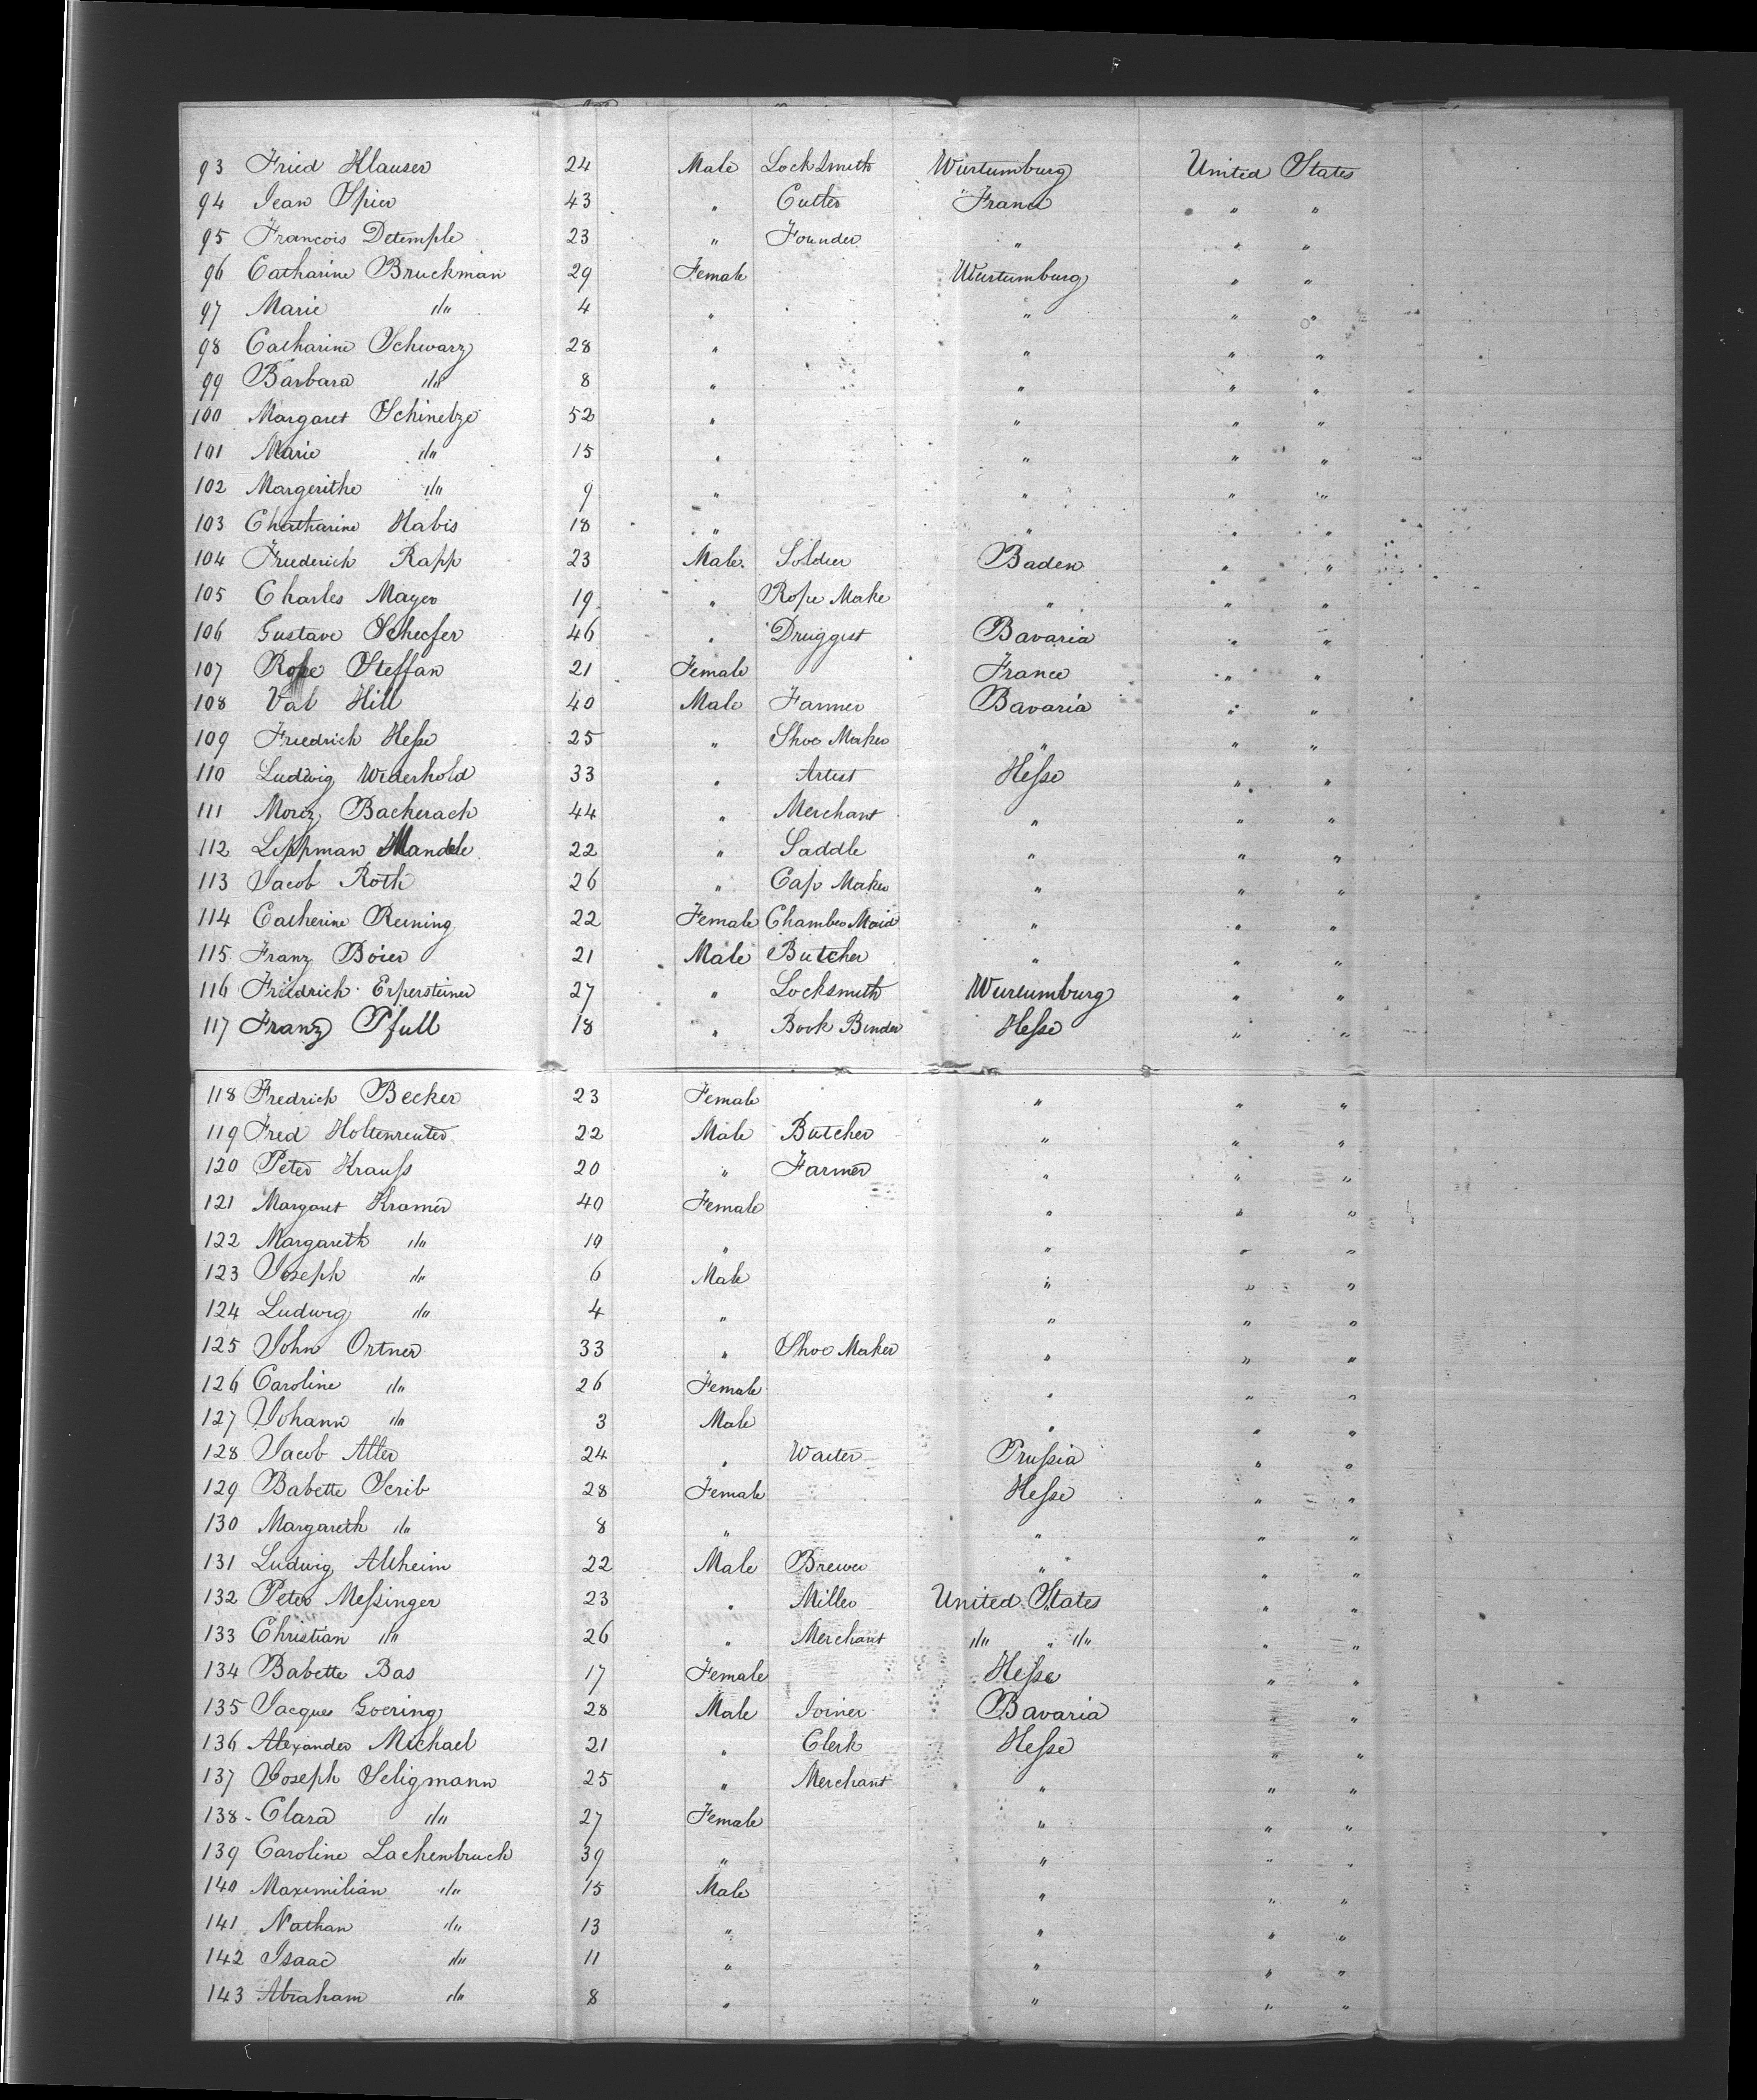 93 Fried Klauser 24 Male Lock Smith Wurtumburg United States
94 Jean Spier 43 " Cutter France " "
95 Francois Detemple 23 " Founder " " "
96 Catharine Bruckman 29 Female Wurtumburg " "
97 Marie "/" 4 " " " "
98 Catharine Schwarz 28 " " " "
99 Barbara "/" 8 " " " "
100 Margaret Schinelze 52 " " " "
101 Marie "/" 15 " " " "
102 Margerithe "/" 9 " " " "
103 Chatharine Habis 18 " " " "
104 Friederich Rapp 23 Male. Soldier Baden " "
105 Charles Mayer 19 " Rope Make " " "
106 Gustave Schecfer 46 " Druggist Bavaria " "
107 Rose Steffan 21 Female France " "
108 Val Hill 40 Male Farmer Bavaria " "
109 Friedrich Hesse 25 " Shoe Maker " " "
110 Ludwig Wederhold 33 " Artist Hesse " "
111 Moriz Backerach 44 " Merchant " " "
112 Lippman Mandele 22 " Saddle " " "
113 Jacob Roth 26 " Cap Maker " " "
114 Catherine Reining 22 Female Chamber Maid " " "
115 Franz Boier 21 Male Butcher " " "
116 Friedrich Erpersteiner 27 " Locksmith Wurtumburg " "
117 Franz Pfull 18 " Book Binder Hesse " "
118 Fredrich Becker 23 Female " " "
119 Fred Holtenreuter 22 Male Butcher " " "
120 Peter Krauss 20 " Farmer " " "
121 Margaret Kramer 40 Female " " "
122 Margareth "/" 19 " " " "
123 Joseph "/" 6 Male " " "
124 Ludwig "/" 4 " " " "
125 John Ortner 33 " Shoe Maker " " "
126 Caroline "/" 26 Female " " "
127 Johann "/" 3 Male " " "
128 Jacob Alter 24 " Waiter Prussia " "
129 Babette Scrib 28 Female Hesse " "
130 Margareth "/" 8 " " " "
131 Ludwig Alsheim 22 Male Brewer " " "
132 Peter Messinger 23 " Miller United States " "
133 Christian "/" 26 " Merchant "/" " "/" " "
134 Babette Bas 17 Female Hesse " "
135 Jacques Goering 28 Male Joiner Bavaria " "
136 Alexander Michael 21 " Clerk Hesse " "
137 Joseph Seligmann 25 " Merchant " " "
138 - Clara "/" 27 Female " " "
139 Caroline Lachenbruch 39 " " " "
140 Maximilian "/" 15 Male " " "
141 Nathan "/" 13 " " " "
142 Isaac "/" 11 " " " "
143 Abraham "/" 8 " " " "